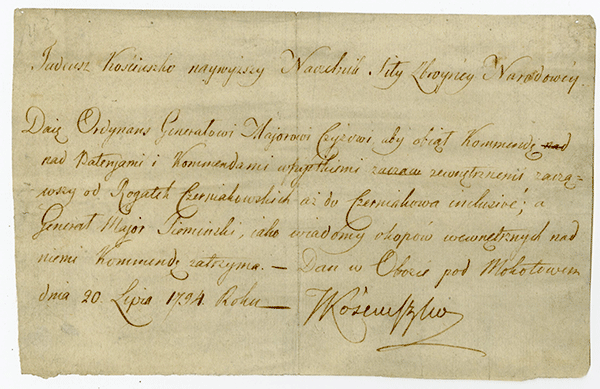 Tadeusz Kościuszko naywyższy Naczelnik Siły Zbroyney Narodowéy.
Daię Ordynans Generałowi Majorowi Czyżowi aby obiął Kommendę nad
nad Baterjami i Kommendami wszystkiemi zaczaw zewnętrznemi zaczą-
wszy od Rogatek Czerniakowskich aż do Czerniakowa inclusivé; a
Generał Major Siemiński, iako wiadomy okopów wewnętrznych nad
niemi Kommendę zatrzyma. — Dan w Obozie pod Mokotowem
dnia 20 Lipca 1794 Roku —
TKościuszko